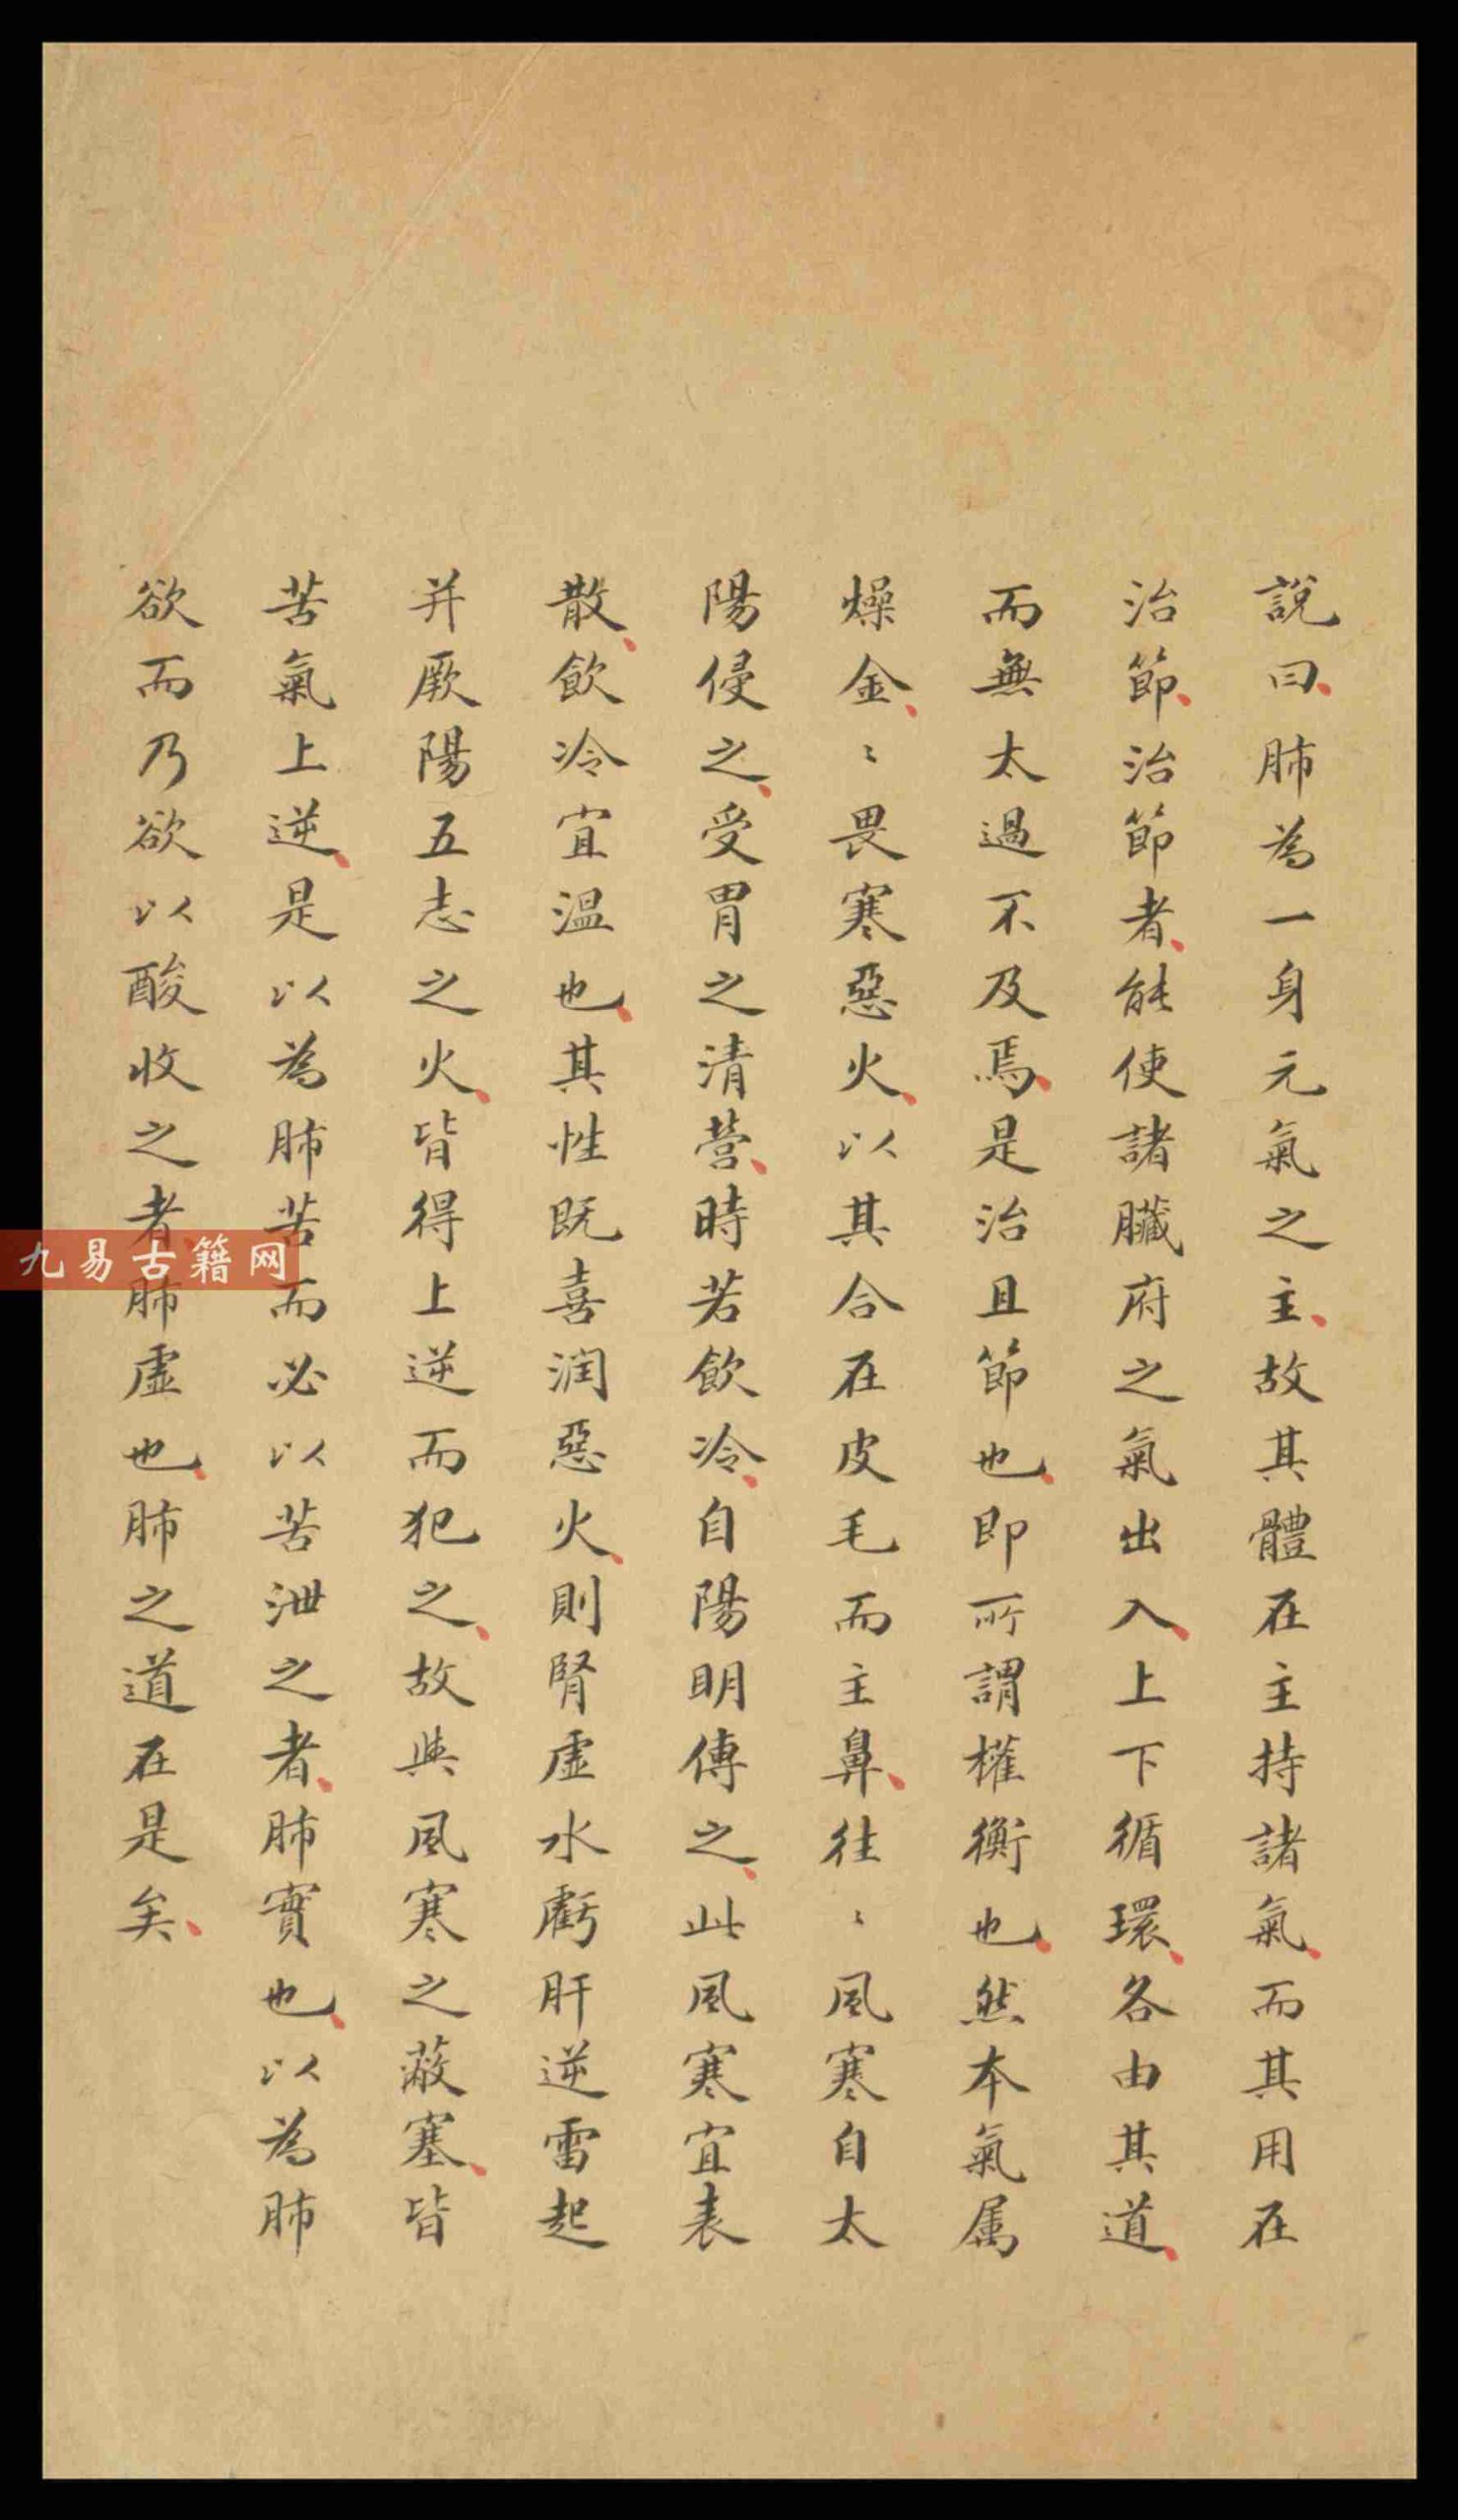 說曰、肺為一身元氣之主、故其體在主持諸氣、而其用在
治節、治節者、能使諸臟府之氣出入、上下循環、各由其道、
而無太過不及焉、是治且節也、即所謂權衡也、然本氣属
燥金、〻畏寒惡火、以其合在皮毛而主鼻、往〻風寒自太
陽侵之、受胃之清營、時若飲冷、自陽明傳之、此風寒宜表
散、飲冷宜温也、其性既喜润惡火、則腎虛水虧肝逆雷起
并厥陽五志之火、皆得上逆而犯之、故與風寒之蔽塞、皆
苦氣上逆、是以為肺苦而必以苦泄之者、肺實也、以為肺
欲而乃欲以酸收之者、肺虛也、肺之道在是矣、
九易古籍网